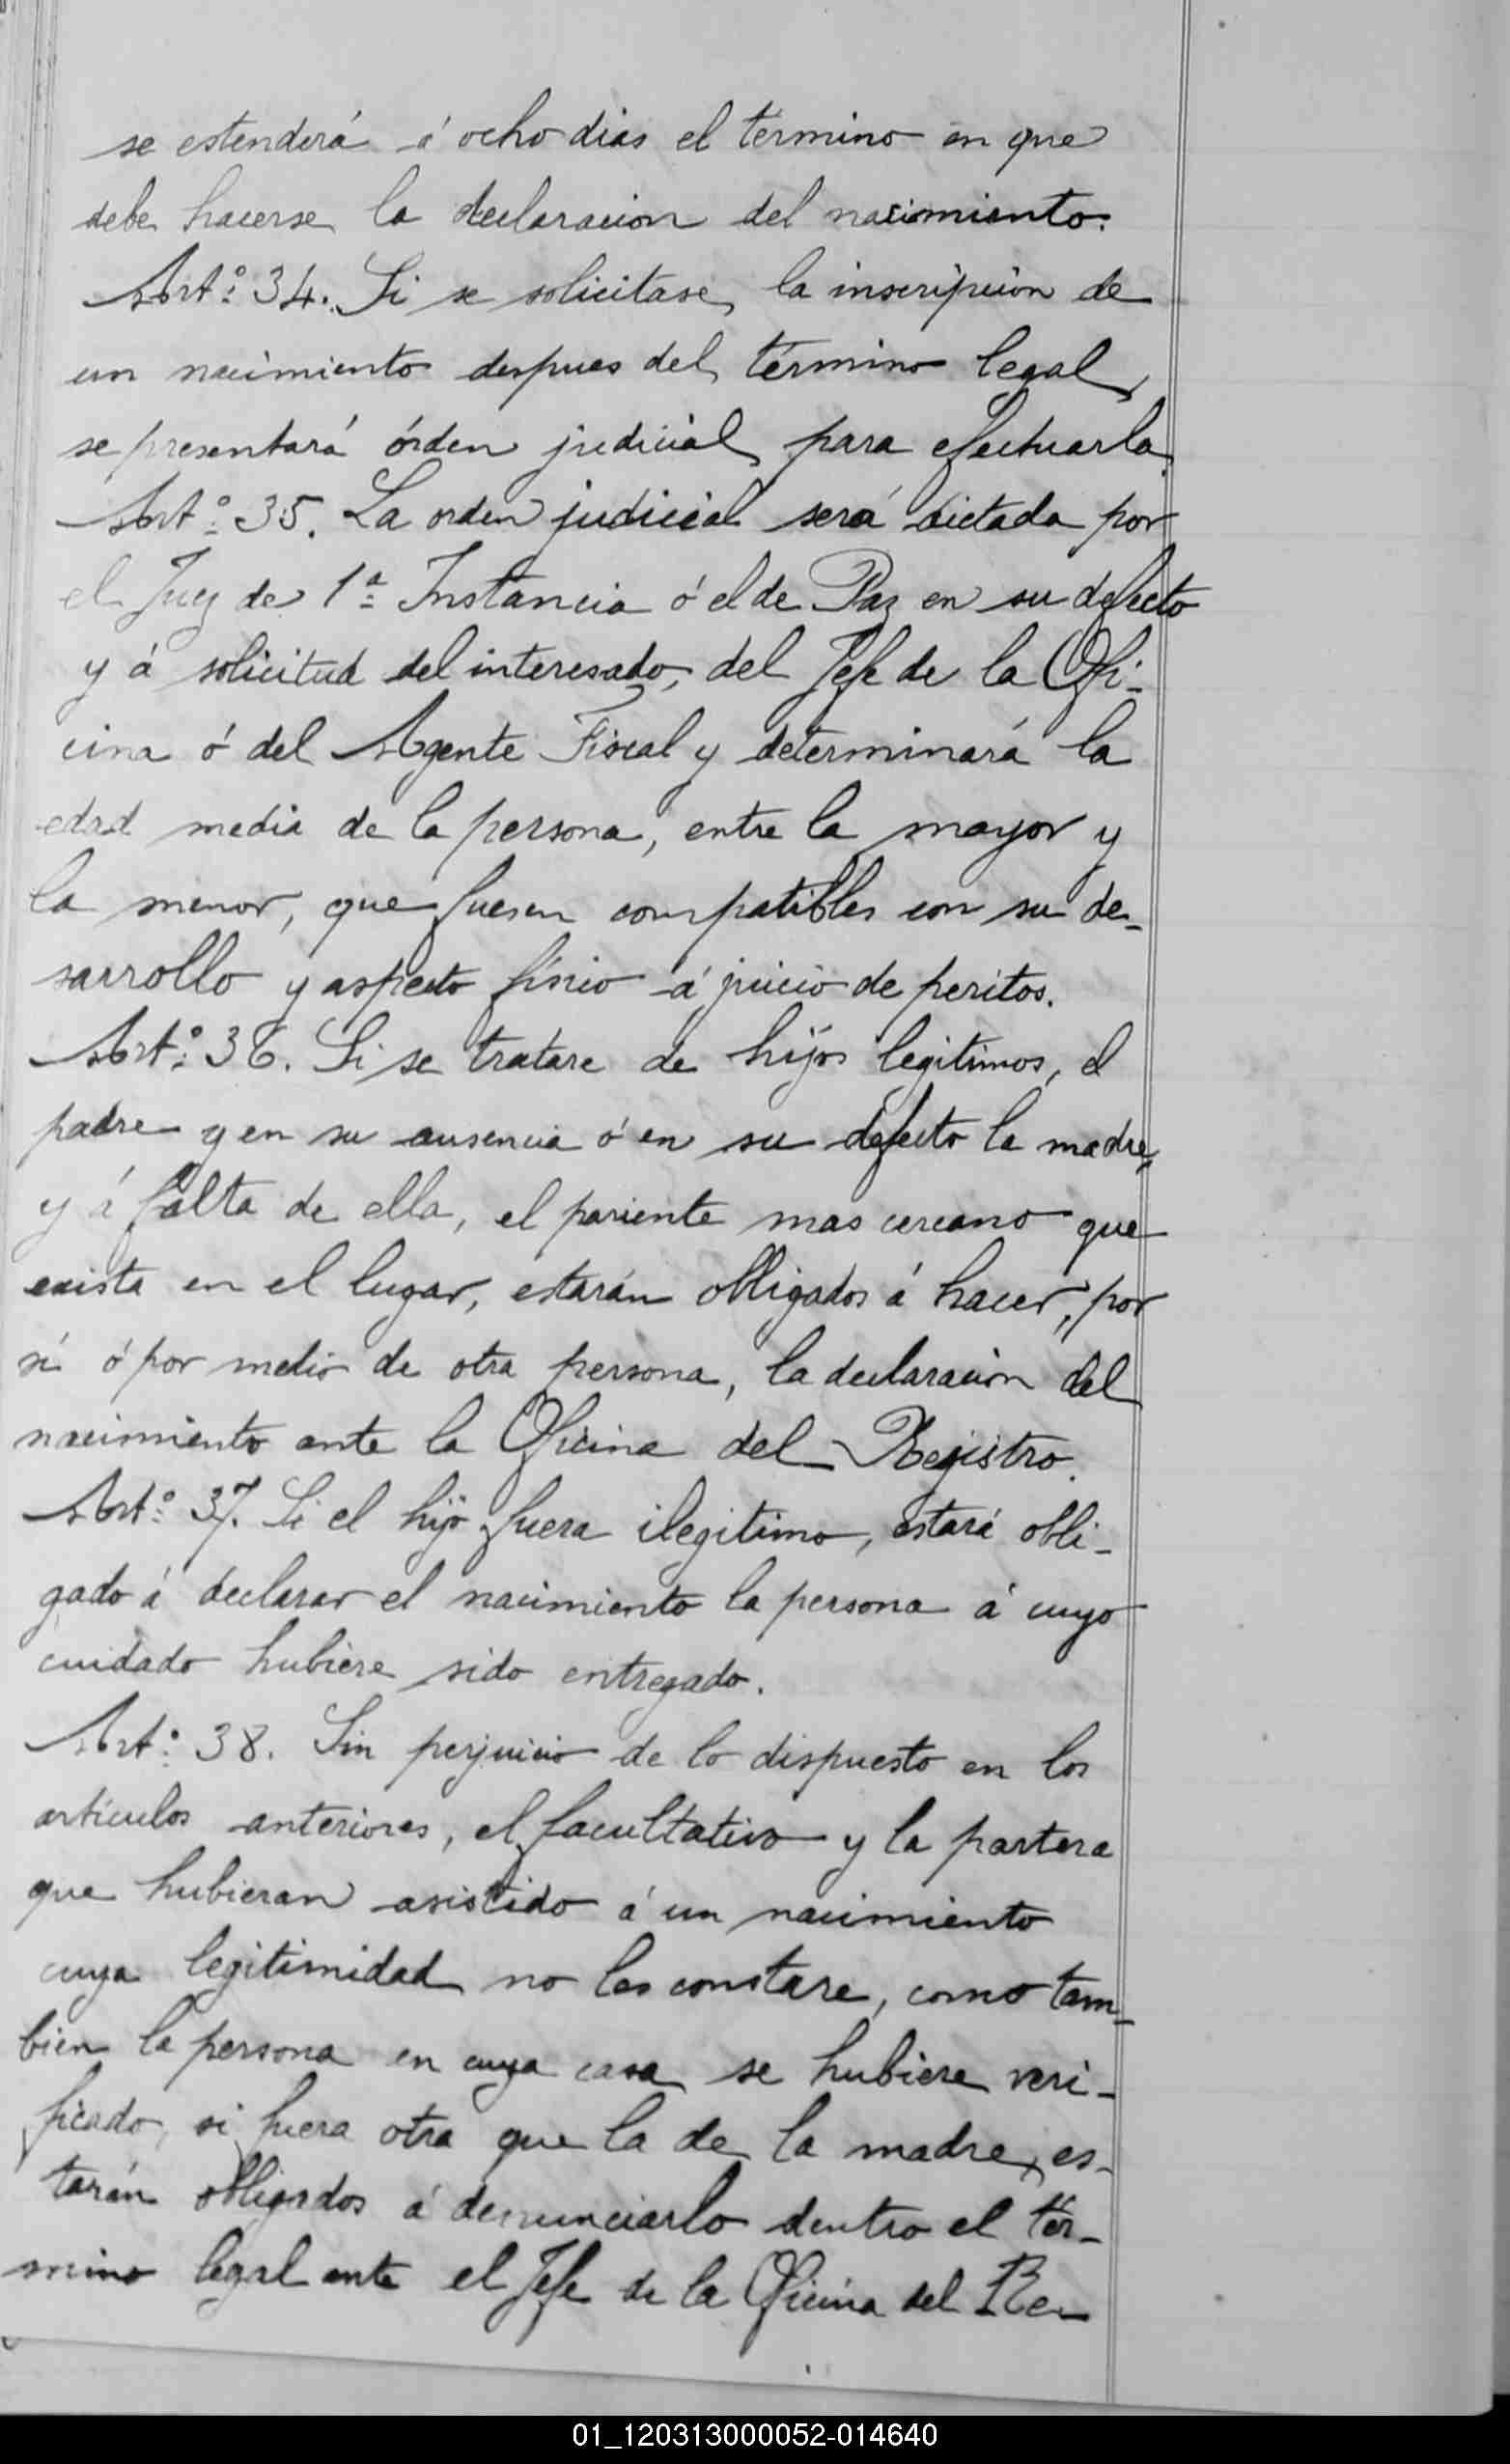 se estenderá á ocho dias el término en que
debe hacerse la declaracion del nacimiento.
Art.º 34. Si se solicitase, la inscripcion de
un nacimiento despues del término legal,
se presentará órden judicial para efectuarla.
Art.º 35. La orden judicial será dictada por
el Juez de 1.ª Instancia ó el de Paz en su defecto
y á solicitud del interesado, del Jefe de la Ofi-
cina ó del Agente Fiscal y determinará la
edad media de la persona, entre la mayor y
la menor, que fuesen compatibles con su de-
sarrollo y aspecto físico á juicio de peritos.
Art.º 36. Si se tratare de hijos legitimos, el
padre y en su ausencia ó en su defecto la madre,
y á falta de ella, el pariente mas cercano que
exista en el lugar, estarán obligados á hacer, por
sí ó por medio de otra persona, la declaración del
nacimiento ante la Oficina del Registro.
Art.º 37. Si el hijo fuera ilegitimo, estará obli-
gado á declarar el nacimiento la persona á cuyo
cuidado hubiere sido entregado.
Art.º 38. Sin perjuicio de lo dispuesto en los
artículos anteriores, el facultativo y la partera
que hubieran asistido á un nacimiento
cuya legitimidad no les constare, como tam-
bien la persona en cuya casa se hubiere veri-
ficado, si fuera otra que la de la madre, es-
tarán obligados á denunciarlo dentro el tér-
mino legal ante el Jefe de la Oficina del Re-
01_120313000052-014640